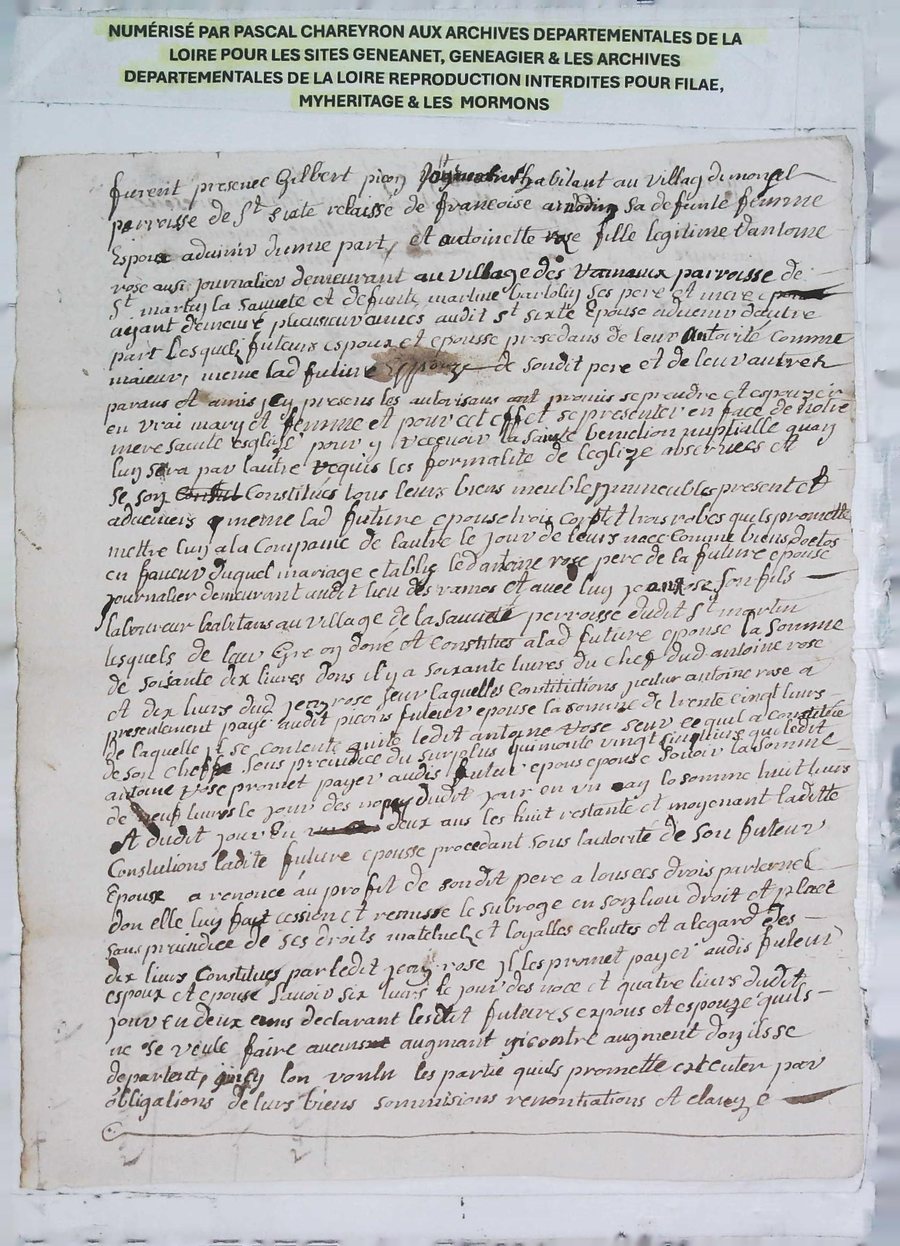 NUMÉRISÉ PAR PASCAL CHAREYRON AUX ARCHIVES DEPARTEMENTALES DE LA
LOIRE POUR LES SITES GENEANET, GENEAGIER & LES ARCHIVES
DEPARTEMENTALES DE LA LOIRE REPRODUCTION INTERDITES POUR FILAE,
MYHERITAGE & LES MORMONS
furent presenc Gilbert picon habitant au villag du
perroisse de St sixte relaissé de francoise sa defunte femme
Espoux advinir dunne part, et antoinette rose fille legitime dantoine
rose ausi journalier demeurant au village des parroisse de
St martin la sauveté et defunte martine ses pere et mere
ayant demeuré plusieur années audit st sixte Epouse advenir dautre
part Lesquels futeurs espoux et epousse prosedans de leur autorité comme
maieur, meme lad future de sondit pere et de leur autres
parans et amis jcy presens les autorisans ont promis se prendre et espouzér
en vrai mary et femme et pour cet effet se presenter en face de notre
mere sainte esglize pour y recevoir la sainte benediction nuptialle quan
lun sera par lautre requis les formalité de leglize observées et
se son Constitués tous leurs biens meuble jmmeubles present et
advenirs meme lad future epouse trois et trois robes quils promette
mettre luy a la Companie de lautre le jour de leurs noce comme biens
en faveur duquel mariage etablis led antoine rose pere de la future epouse
journalier demeurant audit lieu des et avec luy jean rose son fils
laboureur habitans au village de la sauveté perroisse dudit St martin
lesquels de leur gre on doné et Constitués a lad future epouse la somme
de soisante dix livres dons il y a soixante livres du chef dud antoine rose
et dix livres dud jean rose seur laquelles Constitutions jceluy antoine rose a
presentement payé audit picons futeur epouse la somme de trente cinq livrs
de laquelle jl se contente quite ledit antoine rose seur ce quil a Constituée
de son cheff sous prejudice du surplus qui monte vingt cinq livrs que ledit
antoine rose promet payer audis futeur epous epouse savoir la somme
de neuf livres le jour des nopces dudit jour en un an la somme huit livrs
et dudit jour en deux ans les huit restante et moyenant ladite
Constutions ladite future epousse procedant sous lautorité de son futeur
Epoux a renoncé au profit de sondit pere a tous ces drois parternel
don elle luy fait cession et remisse le subroge en son lieu droit et place
sans prejudice de ses droits maternels et loyalles echutes et alegard des
dix livrs Constitues par ledit jean rose jl les promet payer audis futeur
espoux et epouse savoir six livrs le jour des noce et quatre livrs dudit
jour en deux anns declarant lesdit futeures expous et espouze quils
ne se veule faire aucuns augmant ni contre augment don ils se
departent, jnsy lon voulu les partie quils promette executer par
obligations de lurs biens sommisions renontiations et clauze